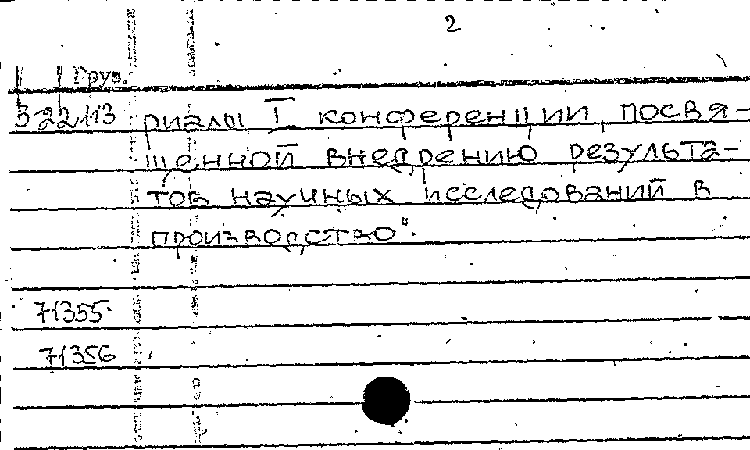 2
Груз.
5-22413 риалы I конференции, посвя-
щенной внедрению результа-
тов научных исследований в
производство".
71355
71356